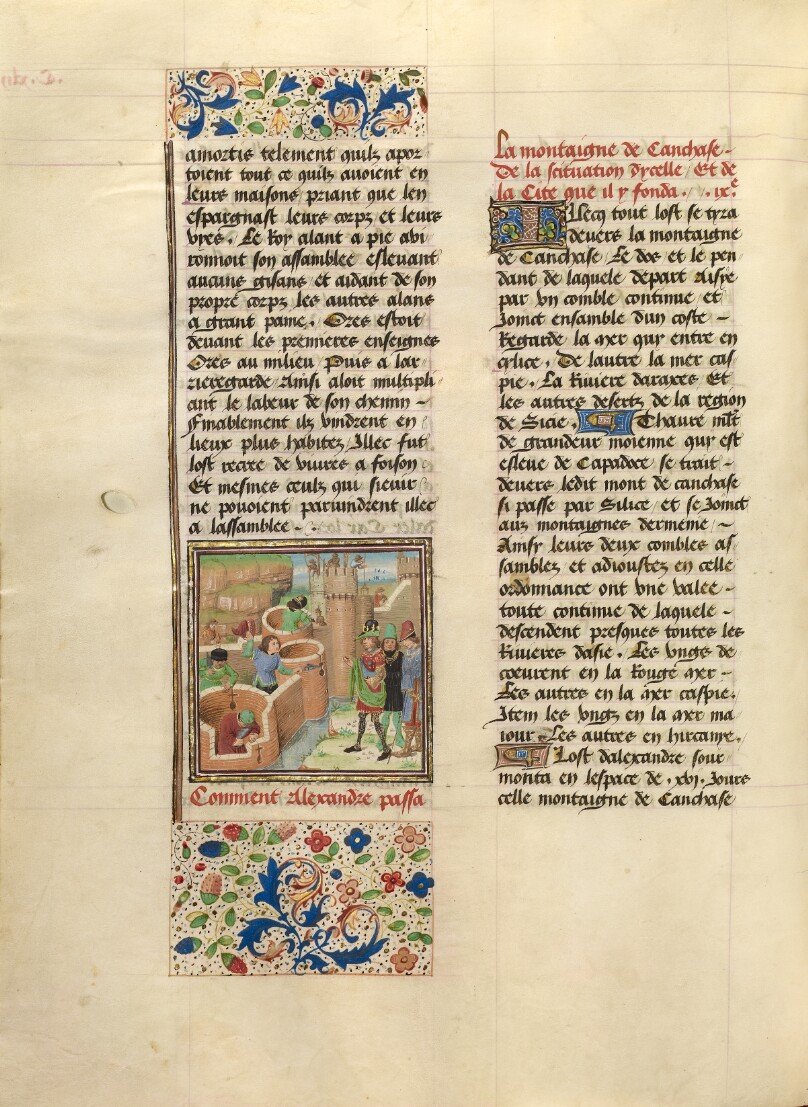 amortis telement quilz apor
toient tout ce quilz auoient en
leurs maisons priant que len
espargnast leurs corpz et leurs
vyes. Le Roy alant a pie aui
ronnoit son assamblee esleuant
aucuns gisans et aidant de son
propre corpz les autres alans
a grant paine. Ores estoit
deuant les premieres enseignes
Ores au milieu Puis a lar
rieregarde Ainsi aloit multipli
ant le labeur de son chemin
Finablement ilz vindrent en
lieux plus habitez Illec fut
lost recree de viures a foison
Et mesmes ceulz qui sieuir
ne pouoient paruindrent illec
a lassamblee
Comment Alexandre passa
La montaigne de Canchase
De la scituation dycelle Et de
la Cite que il y fonda. .ix.e
Illecq tout lost se tyra
deuers la montaigne
de Canchase Le dos et le pen
dant de laquele depart Aisye
par vn comble continue et
Joinct ensamble dun coste
Regarde la mer qui entre en
cylice. De lautre la mer cas
pie. La Riuiere daraxes Et
les autres desertz de la region
de Sicie. Thaure mlt
de grandeur moienne qui est
esleue de Capadoce se trait
deuers ledit mont de canchase
si passe par Silice et se Joinct
aux montaignes dermenie
Ainsy leurs deux combles as
samblez et adioustez en celle
ordonnance ont vne valee
toute continue de laquele
descendent presques toutes les
Riuieres dasie. Les vngs de
coeurent en la Rouge mer
Les autres en la mer caspie.
Item les vngz en la mer ma
iour Les autres en hircanye.
Lost dalexandre sour
monta en lespace de .xvi. Jours
celle montaigne de Canchase